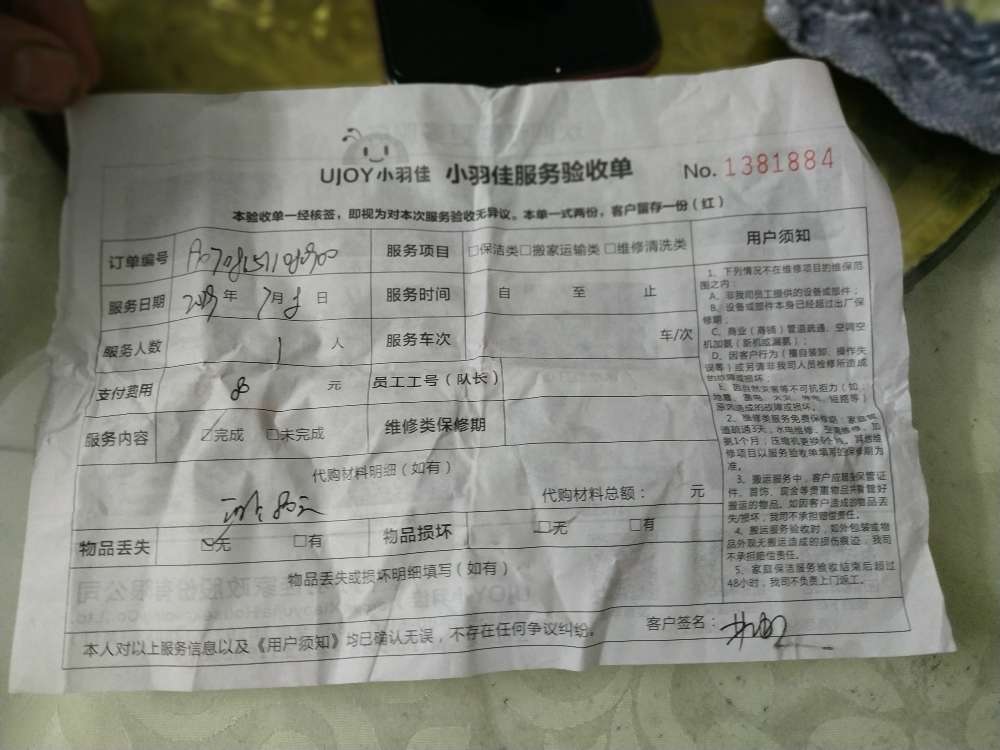 UJOY小羽佳 小羽佳服务验收单 No. 1381884
本验收单一经核签，即视为对本次服务验收无异议。本单一式两份，客户留存一份（红）
订单编号 服务项目 □保洁类□搬家运输类□维修清洗类
服务日期 年 7月 日 服务时间 自 至 止
服务人数 1 人 服务车次 车/次
支付费用 80 元 员工工号（队长）
服务内容 ☑完成 □未完成 维修类保修期
代购材料明细（如有）
代购材料总额： 元
物品丢失 ☑无 □有 物品损坏 □无 □有
物品丢失或损坏明细填写（如有）
本人对以上服务信息以及《用户须知》均已确认无误，不存在任何争议纠纷。 客户签名：
用户须知
1、下列情况不在维修项目的维保范
围之内：
A、非我司员工提供的设备或部件；
B、设备或部件本身已经超过出厂保
修期；
C、商业（商铺）管道疏通、空调空
机加氨（新机或漏氨）；
D、因客户行为（擅自装卸、操作失
误等）或另请非我司人员检修所造成
的故障或损坏；
E、因自然灾害等不可抗拒力（如
短路等）
原因造成的故障或损坏。
2、维修类服务免费保修期：家庭管
道疏通3天，水电维修、加
氨1个月；压缩机更换6个月。其他维
修项目以服务验收单填写的保修期为
准。
3、搬运服务中，客户应随身保管证
件、首饰、现金等贵重物品并看管好
搬运的物品。如因客户造成的物品丢
失/损坏，我司不承担赔偿责任。
4、搬运服务验收时，如外包装或物
品外观无搬运造成的损伤痕迹，我司
不承担赔偿责任。
5、家庭保洁服务验收结束后超过
48小时，我司不负责上门返工。